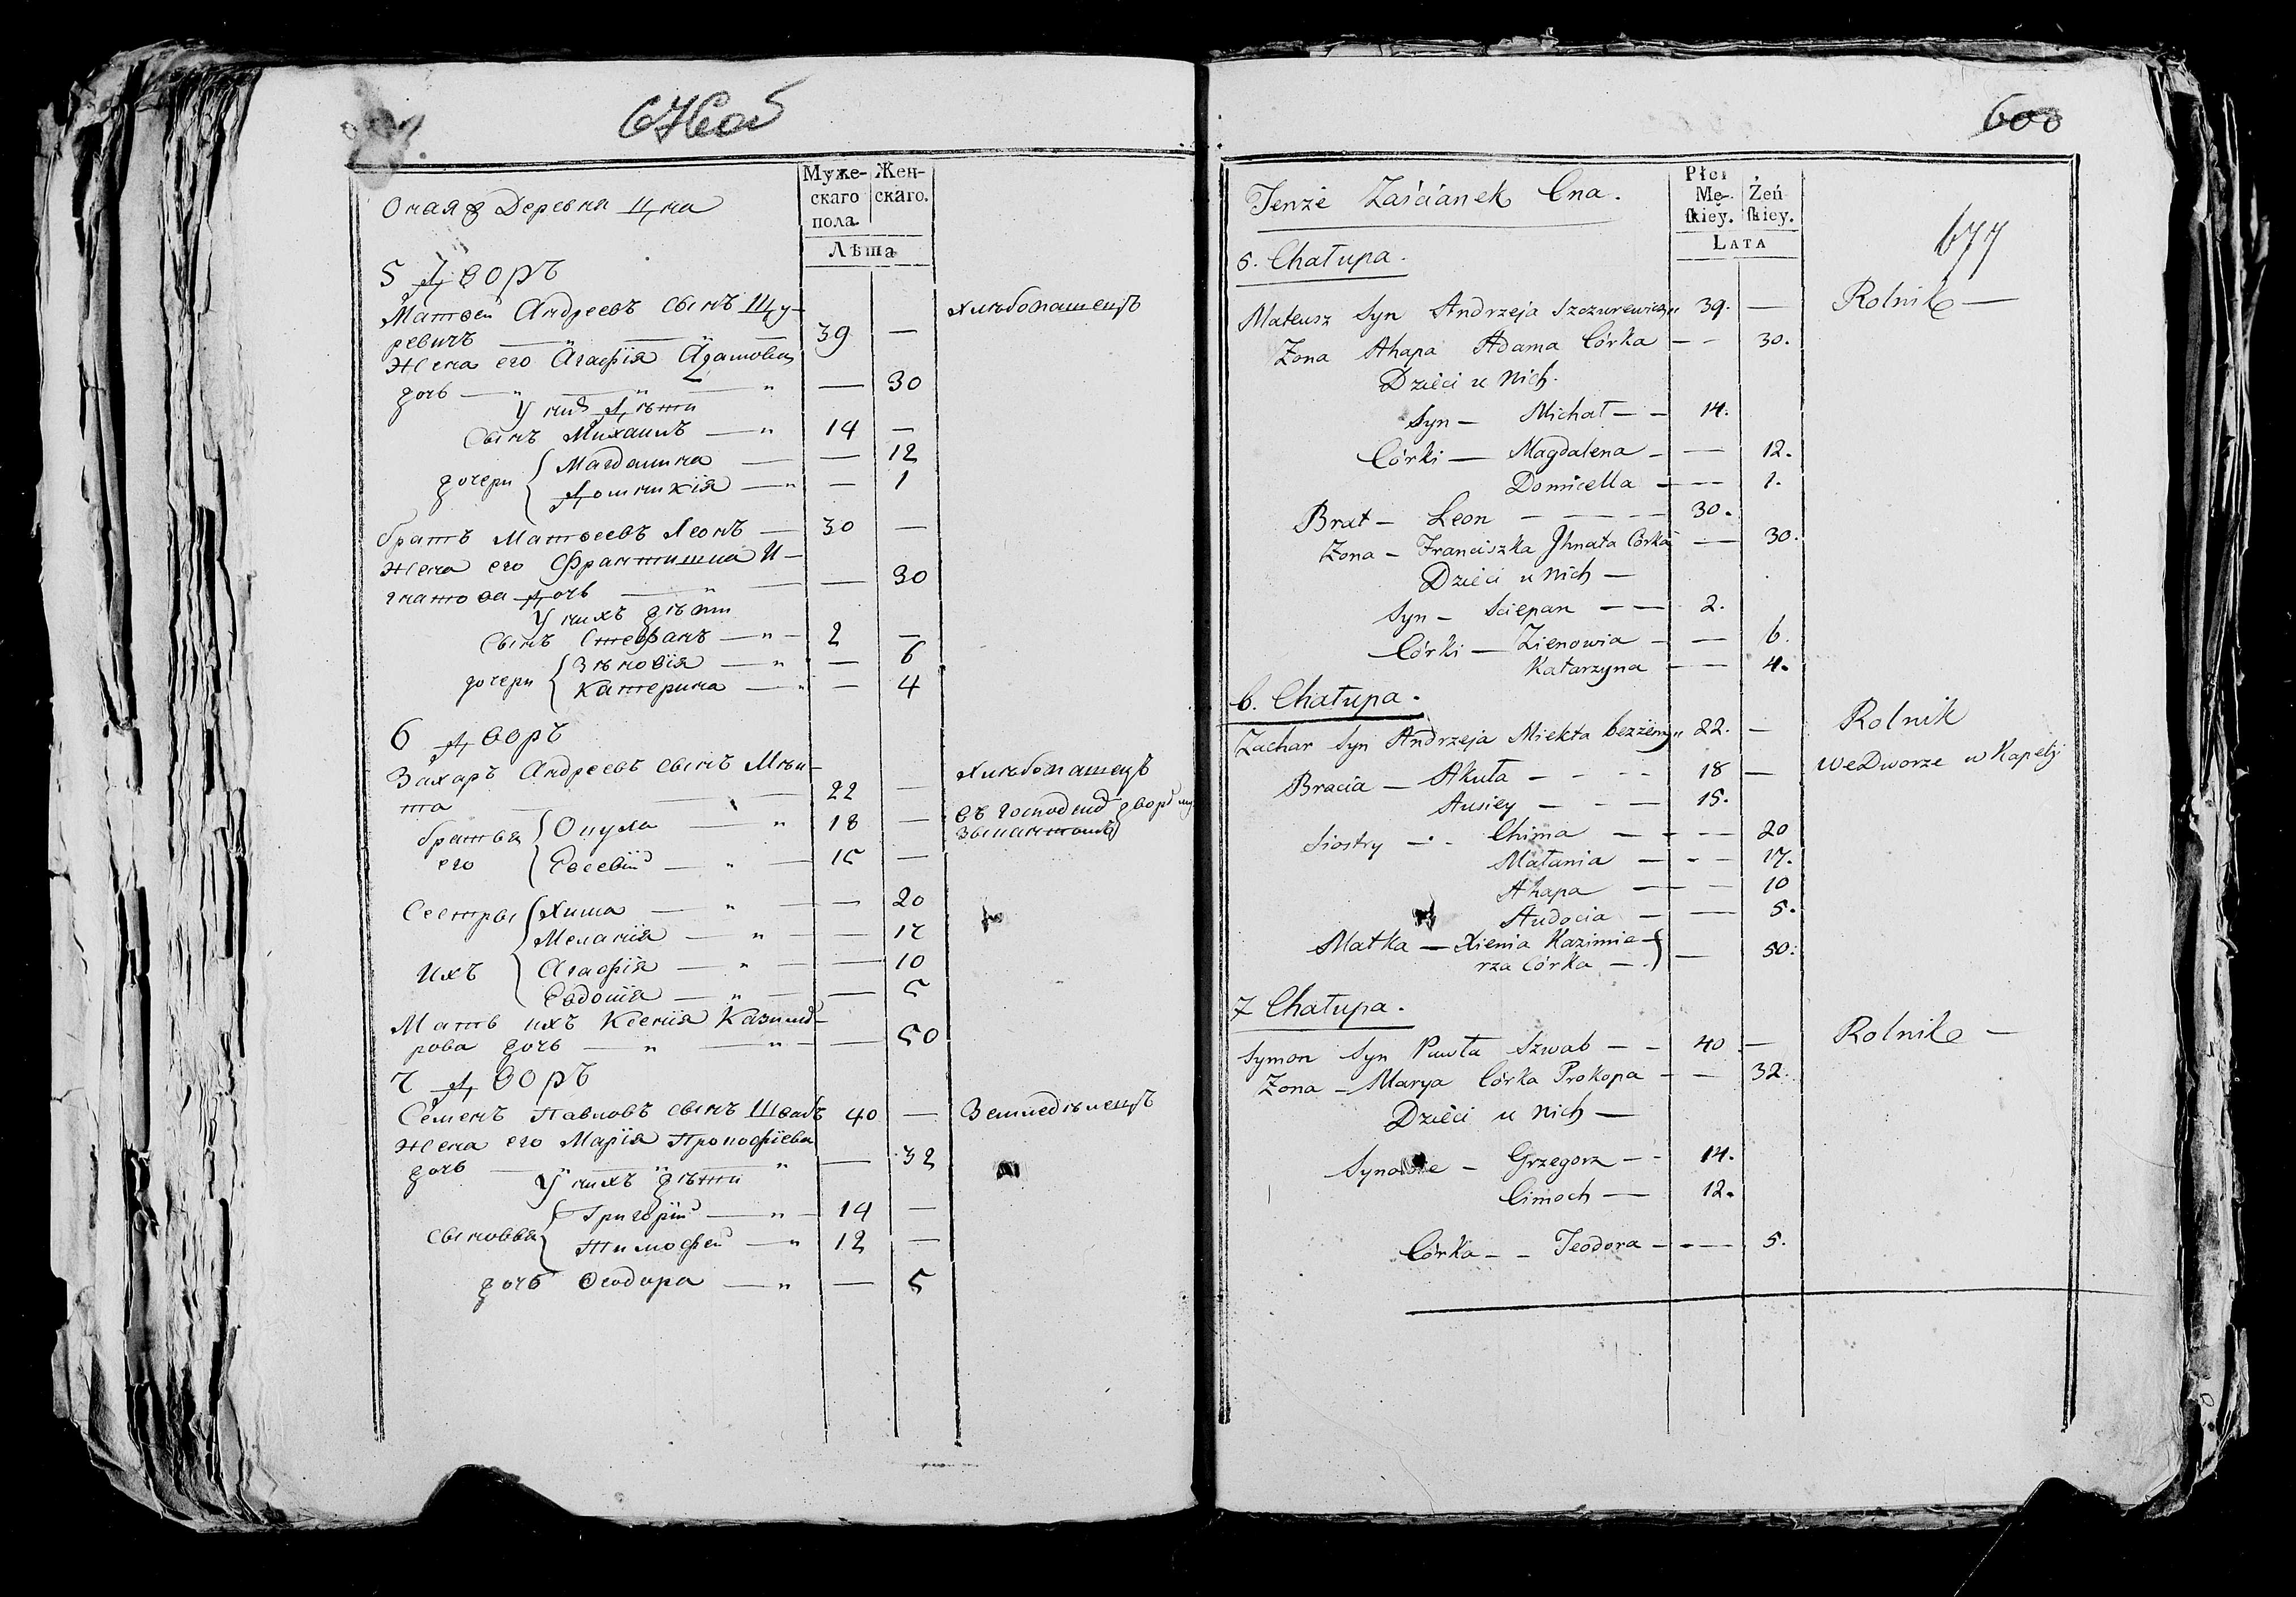 Оная Деревня Цна
Муже-скаго пола. Жен-скаго.
Лѣта
5 Дворъ
Матѳей Андреевъ сынъ Щу-
ревичъ — „ — „ 39 — Хлѣбопашецъ
Жена его Агафія Адамова
дочь — „ — „ — „ — 30
У нихъ Дѣти
Сынъ Михаилъ — „ 14 —
дочери { Магдалина — — 12
Доминикія — „ — 1
братъ Матѳеевъ Леонъ — 30 —
Жена его Францишка И-
гнатова Дочь — „ — — 30
У нихъ дѣти
Сынъ Стефанъ — „ — 2 —
дочери { Зѣновія — „ — 6
Катерина — „ — 4
6 Дворъ
Захаръ Андреевъ сынъ Мѣк-
та — 22 — Хлѣбопашецъ
братья его { Окула — „ 18 — въ господск дворѣ му
зыкантомъ
Евсевій — „ — 15 —
Сестры ихъ { Хима — „ — — 20
Меланія — „ — — 17
Агафія — „ — — 10
Евдокія — „ — — 5
Мать ихъ Ксенія Казими-
рова дочь — „ — „ — — 50
7 Дворъ
Семенъ Павловъ сынъ Швабъ 40 — Земледѣлецъ
Жена его Марія Прокофіева
дочь — „ — „ — „ — 32
У нихъ дѣти
Сыновья { Григорій — „ — 14 —
Тимофей — „ 12 —
дочь Ѳеодора — „ — 5
600
677
Tenże Zaścianek Cna.
Płci Mę-skiey. Żeń-skiey.
LATA
5. Chałupa.
Mateusz Syn Andrzeja Szczurewicz „ 39. — Rolnik —
Zona Ahapa Adama Córka — — 30.
Dzieci u Nich.
Syn — Michał — — 14.
Córki — Magdalena — — 12.
Domicella — — — 1.
Brat — Leon — — — — 30.
Zona — Franciszka Ihnata Córka — 30.
Dzieci u Nich —
Syn — Sciepan — — 2.
Córki — Zienowia — — 6.
Katarzyna — — 4.
6. Chałupa.
Zachar Syn Andrzeja Miekta bezżenny „ 22. — Rolnik
Bracia — Akuła — — — — 18 — we Dworze w Kapelij
Ausiey — — — 15.
Siostry — — Chima — — — — 20
Małania — — — 17.
Ahapa — — — 10
Audocia — — 5.
Matka — Xienia Kazimie-
rza Córka — } — 50.
7 Chałupa.
Symon Syn Pawła Szwab — — 40. — Rolnik —
Zona — Marya Córka Prokopa — — 32.
Dzieci u Nich —
Synowie — Grzegorz — — 14.
Cimoch — 12.
Córka — — Teodora — — — 5.